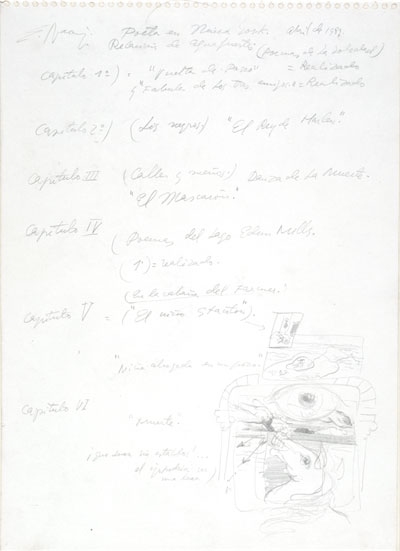 Poeta en Nueva York. Abril de 1989.
(Poemas de la soledad)
Capitulo 1º) "Vuelta de Paseo" = Realizado
y "Fabula de los tres amigos = Realizado
Capitulo 2º) (Los negros) "El Rey de Harlem."
Capitulo III (Calles y sueños) Danza de la Muerte.
"El Mascarón."
Capitulo IV (Poemas del lago Eden Mills.
(1) = realizado.
(En la cabaña del Farmer.
Capitulo V = ("El niño Stanton).
"Niña ahogada en el pozo"
Capitulo VI "Muerte"